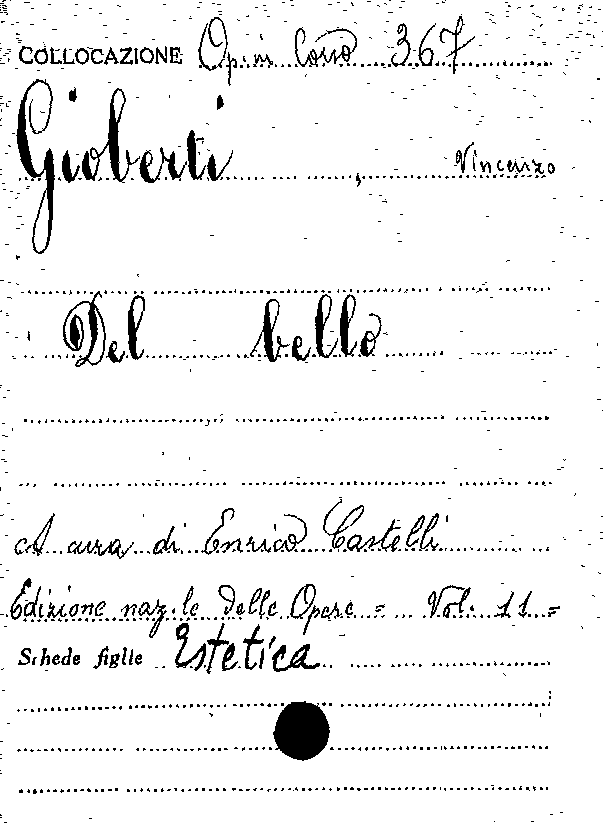 COLLOCAZIONE Op. in Corso 367
Gioberti, Vincenzo
Del bello
A cura di Enrico Castelli
Edizione naz.le delle Opere = Vol. 11 =
Schede figlie Estetica